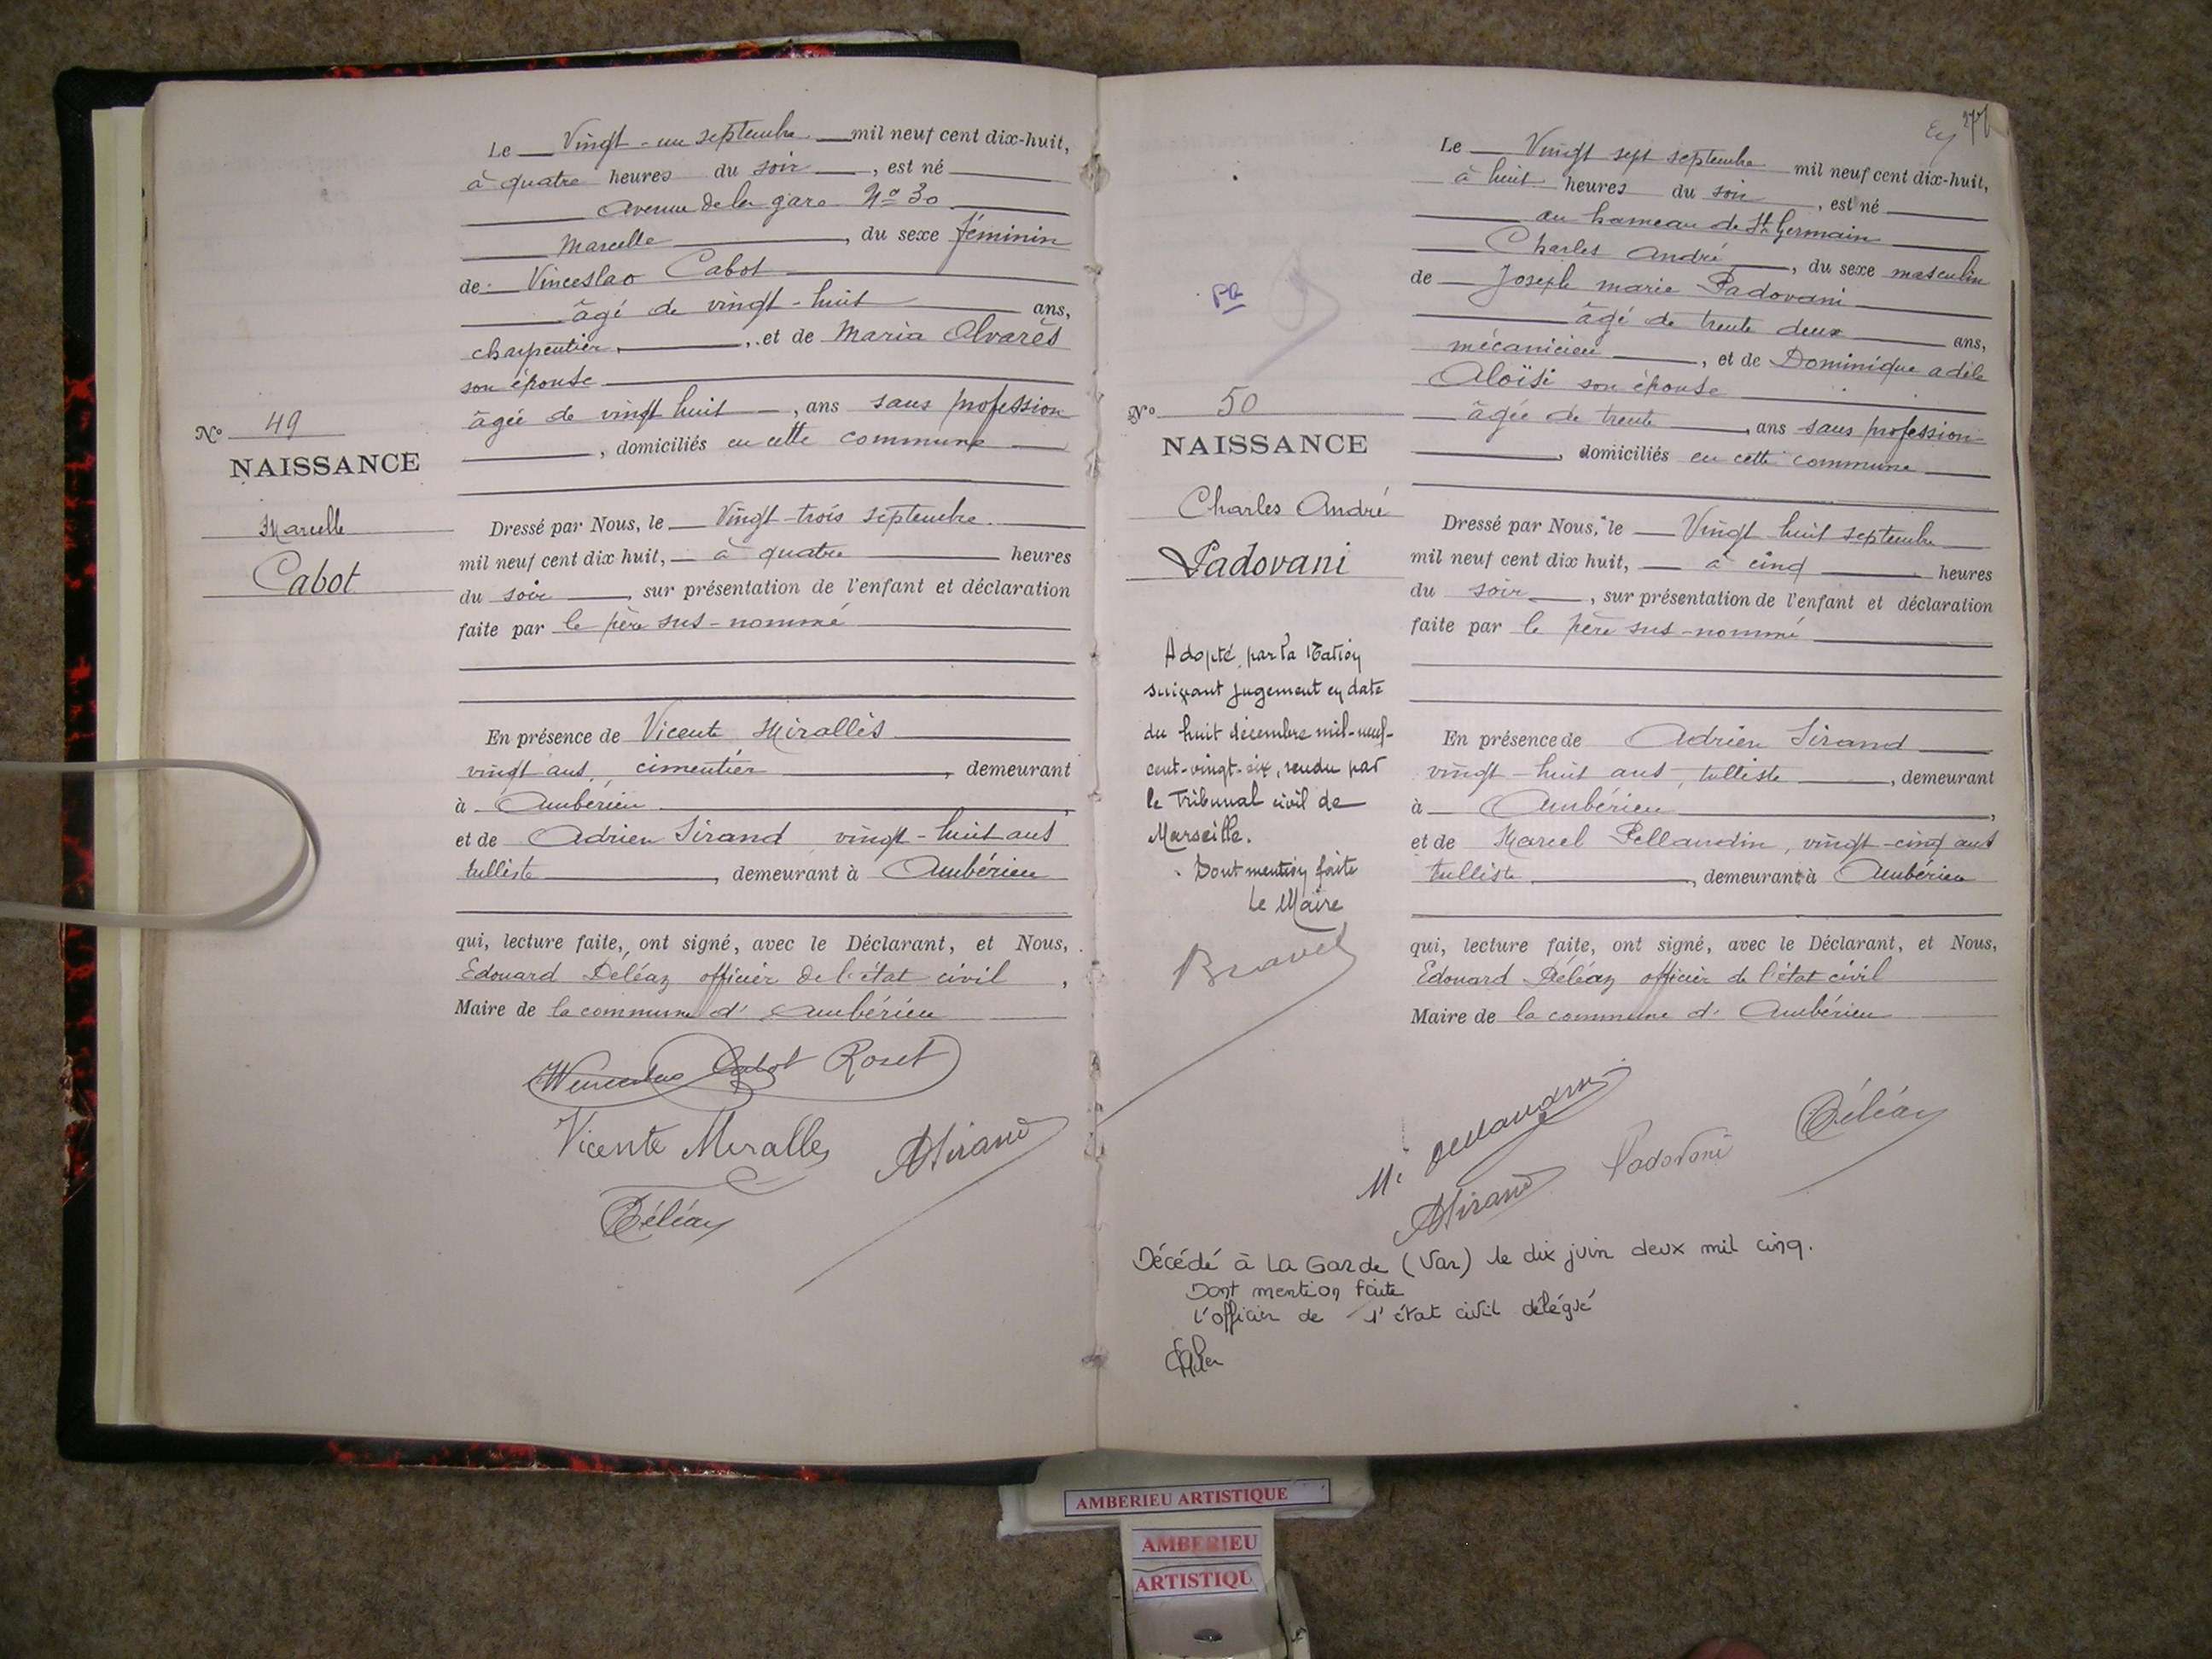 Le Vingt-un septembre mil neuf cent dix-huit,
à quatre heures du soir, est né
avenue de la gare Nº 30
Marcelle, du sexe féminin
de Vinceslao Cabot
âgé de vingt-huit ans,
charpentier, et de Maria Alvarès
son épouse
âgée de vingt huit, ans sans profession
, domiciliés en cette commune
Nº 49
NAISSANCE
Marcelle
Cabot
Dressé par Nous, le Vingt-trois septembre
mil neuf cent dix huit, à quatre heures
du soir, sur présentation de l'enfant et déclaration
faite par le père sus-nommé
En présence de Vicente Mirallès
vingt ans, cimentier, demeurant
à Ambérieu,
et de Adrien Sirand vingt-huit ans
tulliste, demeurant à Ambérieu
qui, lecture faite, ont signé, avec le Déclarant, et Nous,
Edouard Déléaz officier de l'état civil,
Maire de la commune d'Ambérieu
Wenceslao Cabot Roset
Vicente Miralles
ASirand
Déléaz
277
Le Vingt sept septembre mil neuf cent dix-huit,
à huit heures du soir, est né
au hameau de St Germain
Charles André, du sexe masculin
de Joseph marie Padovani
âgé de trente deux ans,
mécanicien, et de Dominique adèle
Aloïsi son épouse
âgée de trente, ans sans profession
, domiciliés en cette commune
Nº 50
NAISSANCE
Charles André
Padovani
Adopté par la Nation
suivant jugement en date
du huit décembre mil-neuf-
cent-vingt-six, rendu par
le Tribunal civil de
Marseille.
Dont mention faite
Le Maire
Bravet
Dressé par Nous, le Vingt huit septembre
mil neuf cent dix huit, à cinq heures
du soir, sur présentation de l'enfant et déclaration
faite par le père sus-nommé
En présence de Adrien Sirand
vingt-huit ans, tulliste, demeurant
à Ambérieu,
et de Marcel Pellaudin, vingt-cinq ans
tulliste, demeurant à Ambérieu
qui, lecture faite, ont signé, avec le Déclarant, et Nous,
Edouard Déléaz officier de l'état civil
Maire de la commune d'Ambérieu
ASirand
Padovani
Déléaz
Décédé à La Garde (Var) le dix juin deux mil cinq.
Dont mention faite
L'officier de l'état civil délégué
AMBERIEU ARTISTIQUE
AMBERIEU
ARTISTIQU